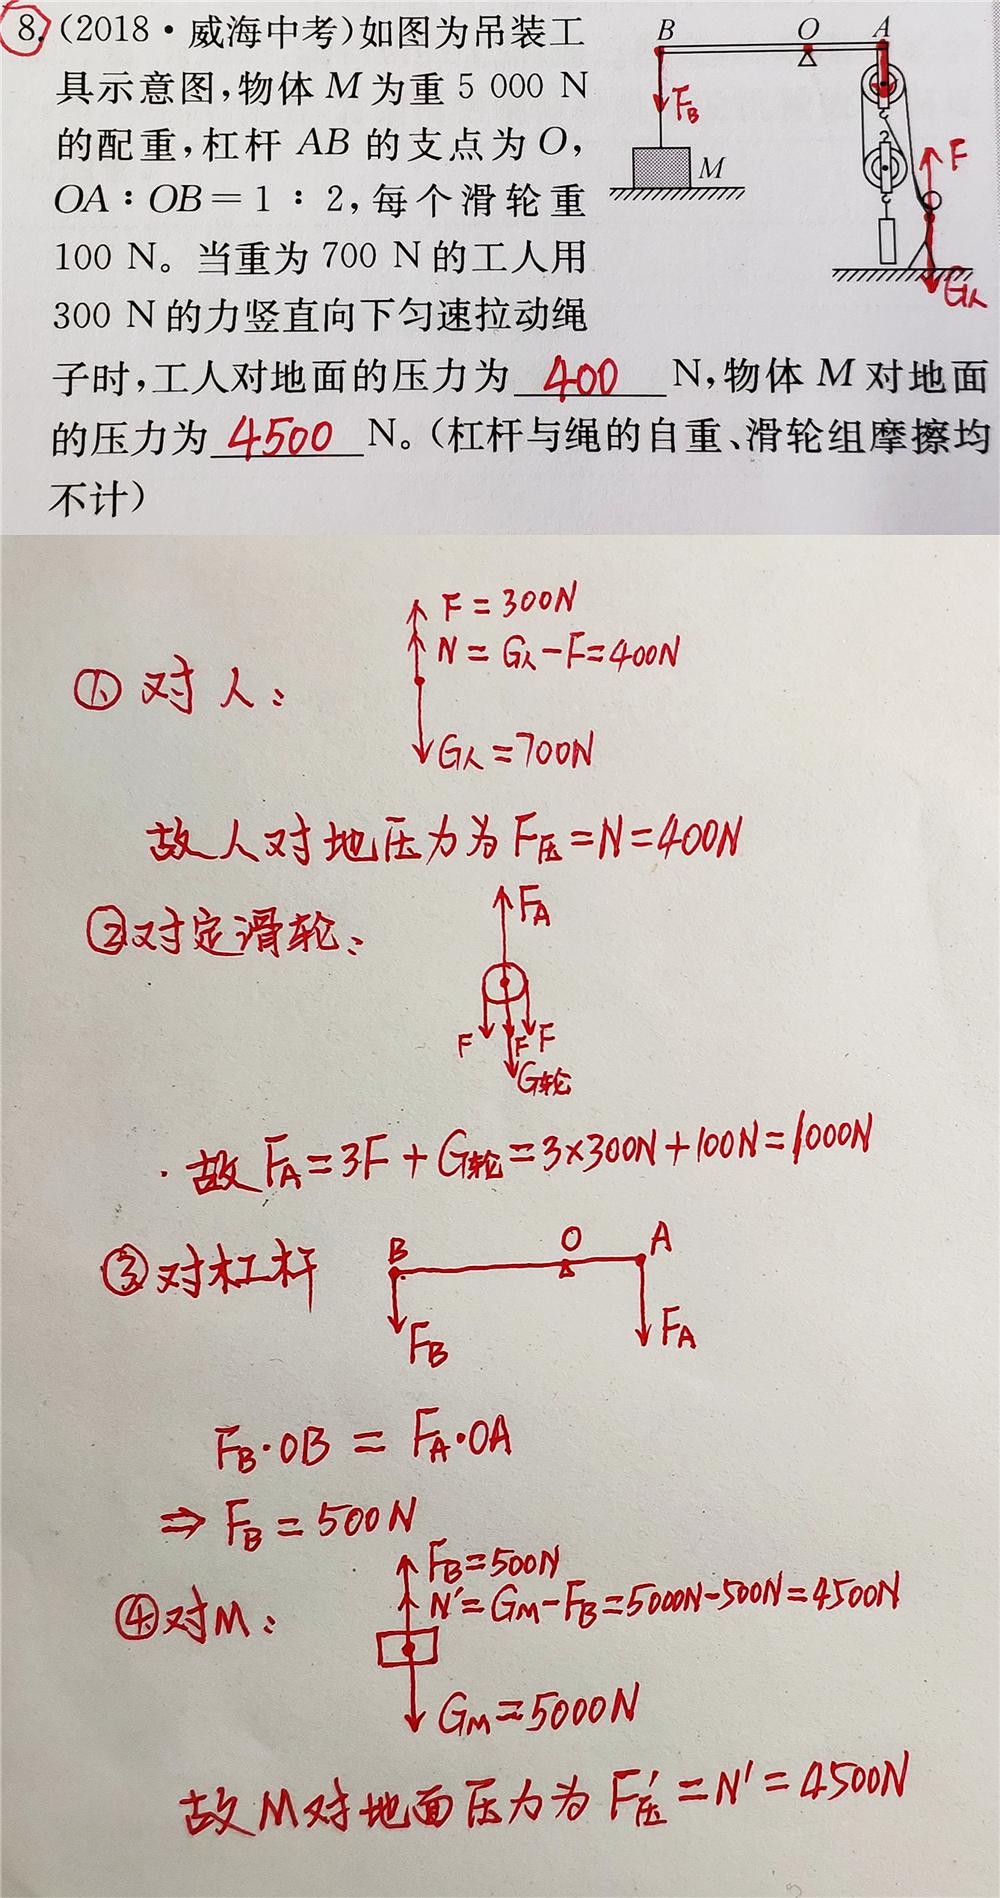 8.(2018·威海中考)如图为吊装工
具示意图,物体 M 为重 5 000 N
的配重,杠杆 AB 的支点为 O,
OA∶OB=1∶2,每个滑轮重
100 N。当重为 700 N 的工人用
300 N 的力竖直向下匀速拉动绳
子时,工人对地面的压力为 400 N,物体 M 对地面
的压力为 4500 N。(杠杆与绳的自重、滑轮组摩擦均
不计)
B O A
F_B
M
F
G人
F=300N
N=G人-F=400N
①对人:
G人=700N
故人对地压力为F压=N=400N
F_A
②对定滑轮:
F F F
G轮
故 F_A=3F+G轮=3×300N+100N=1000N
③对杠杆
B O A
F_B F_A
F_B·OB=F_A·OA
⇒F_B=500N
F_B=500N
N'=G_M-F_B=5000N-500N=4500N
④对M:
G_M=5000N
故M对地面压力为F压'=N'=4500N